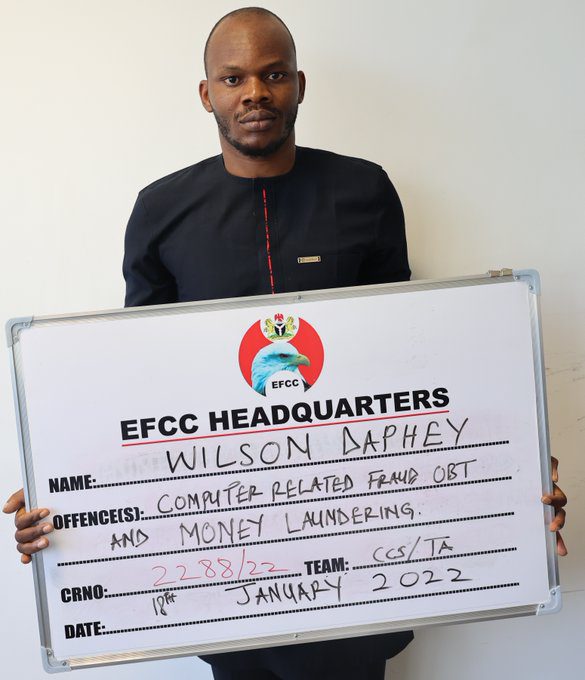 EFCC
EFCC HEADQUARTERS
NAME: WILSON DAPHEY
OFFENCE(S): COMPUTER RELATED FRAUD OBT
AND MONEY LAUNDERING.
CRNO: 2288/22 TEAM: CCS/TA
DATE: 18th JANUARY 2022